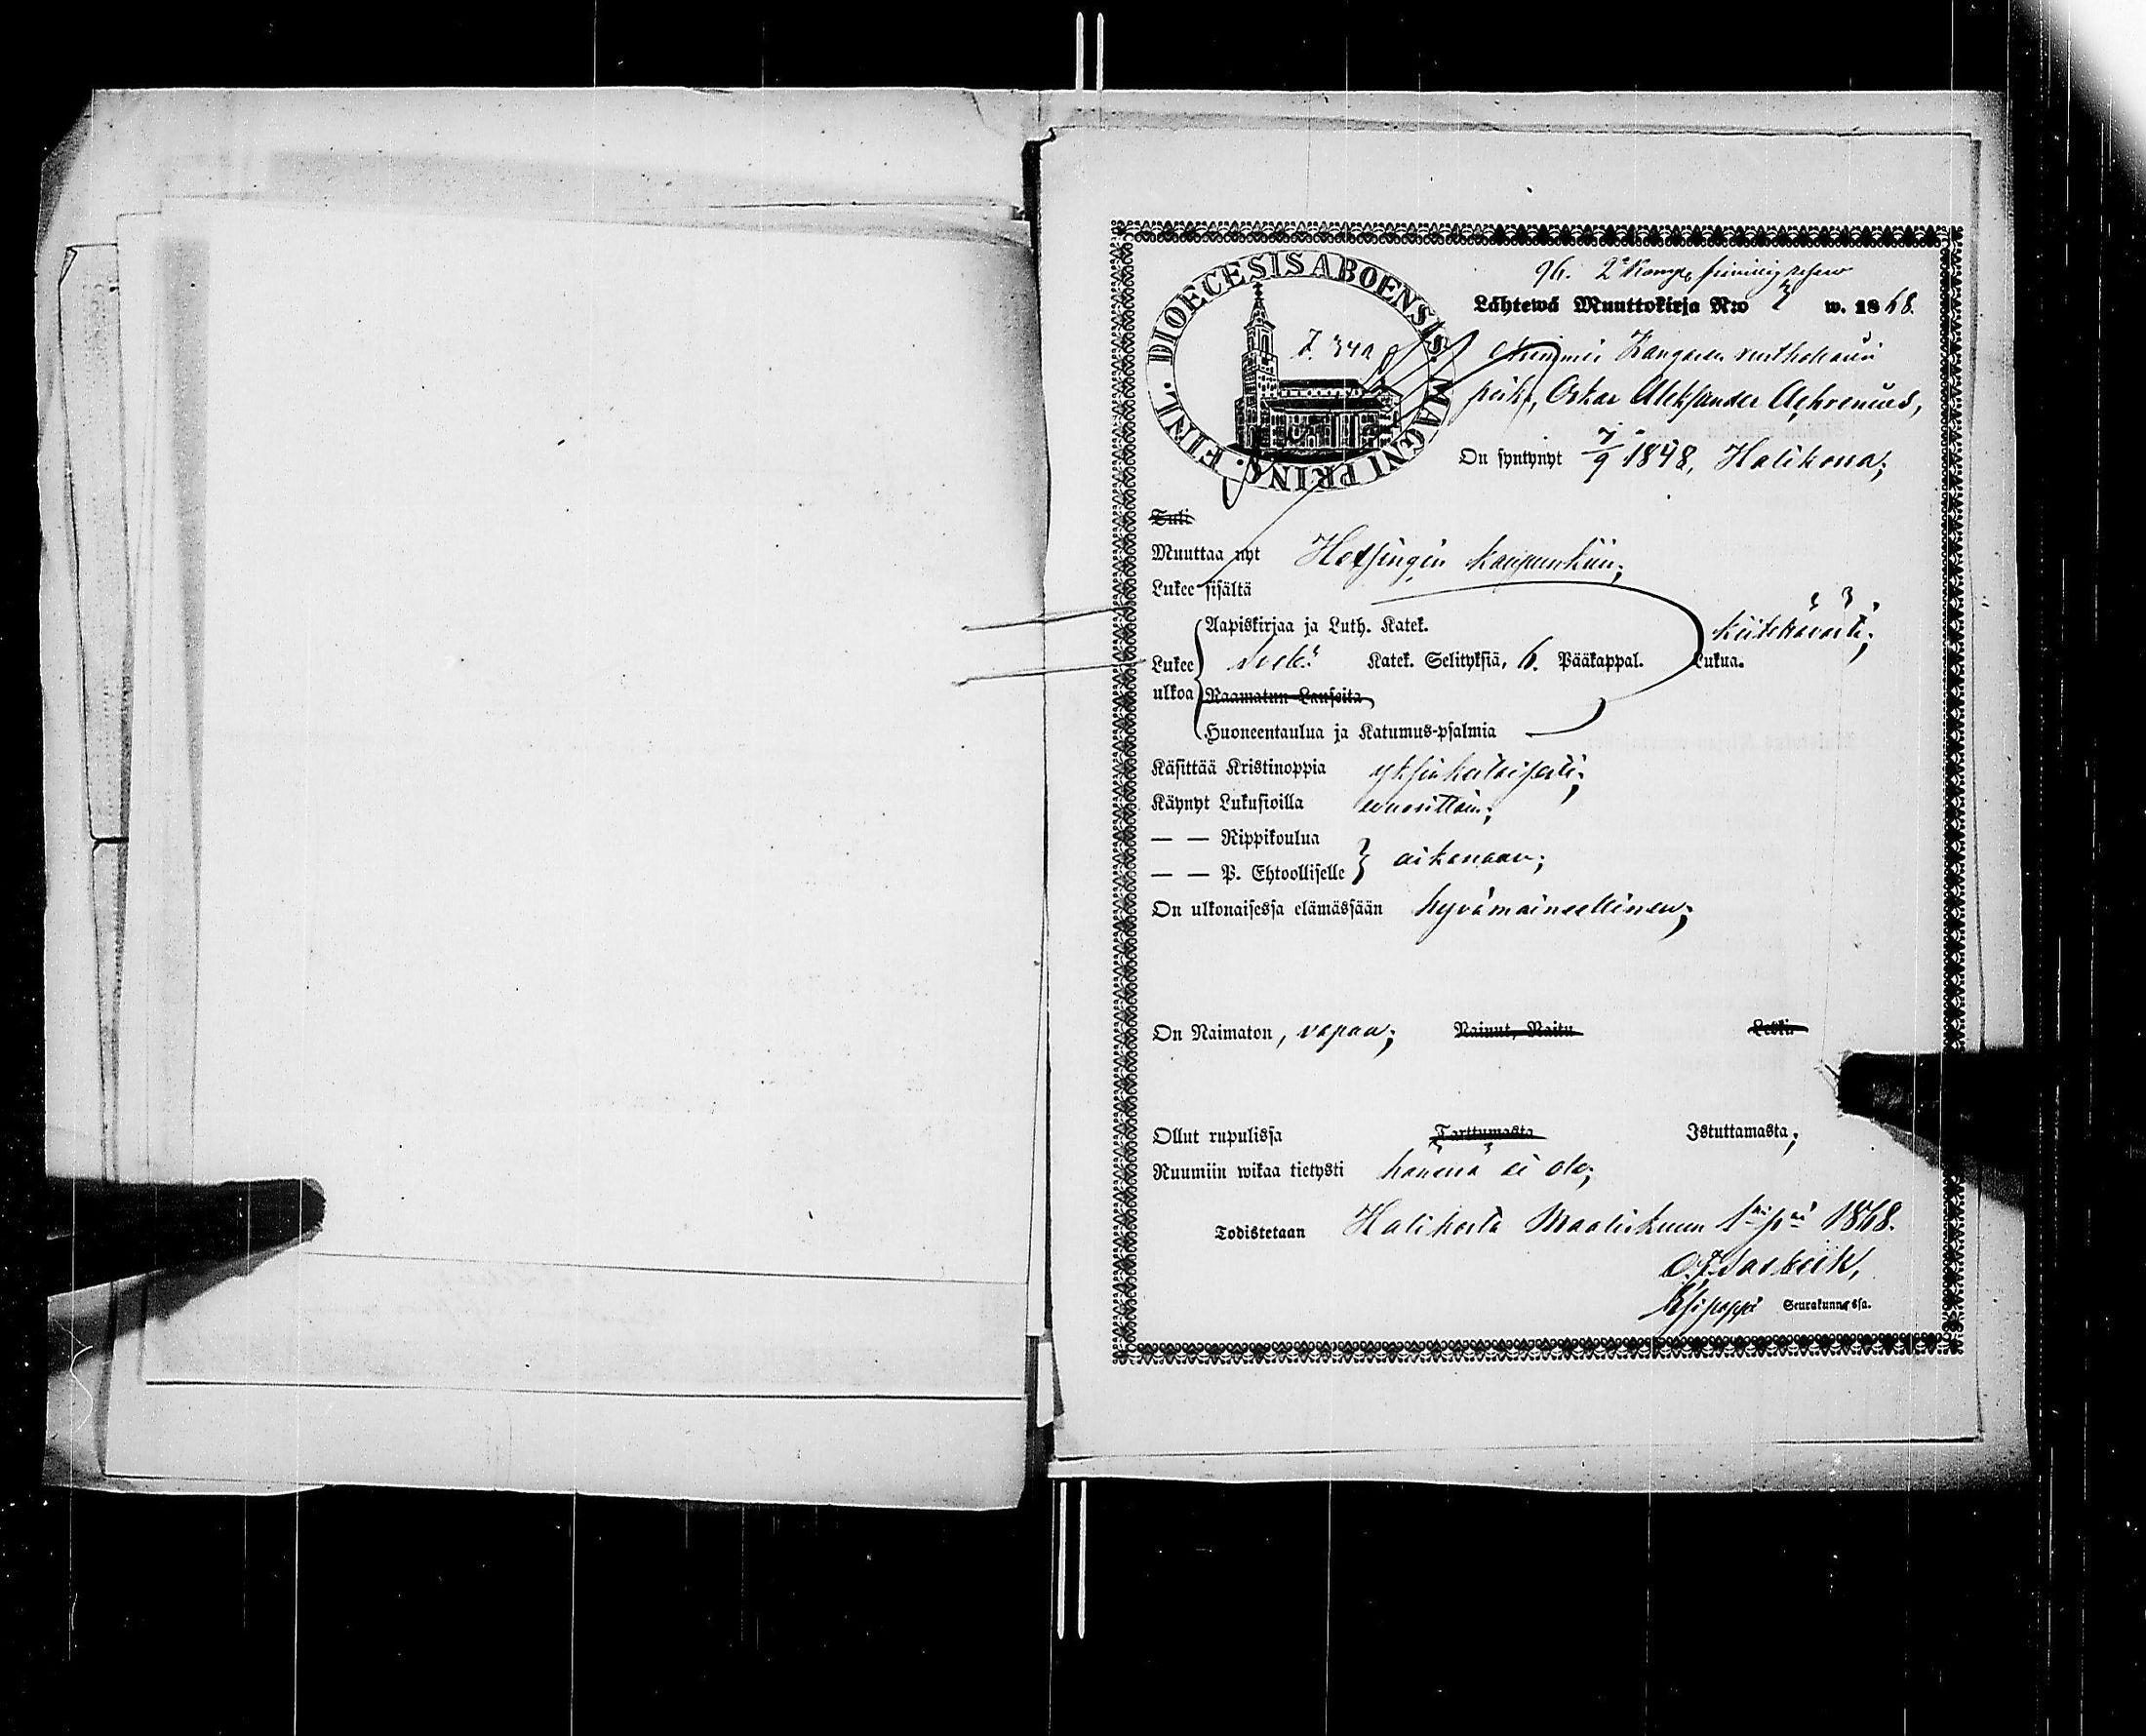 96. 2a Komp.
DIOECESIS ABOENSIS. MAGNI PRINC. FINL.
Lähtewä Muuttokirja N:o w. 1868.
Kangaren
poika, Oskar Aleksander Aehrenius,
On syntynyt 7/9 1848, Halikossa;
Tuli
Muuttaa nyt Helsingin kaupunkiin;
Lukee sisältä
Aapiskirjaa ja Luth. Katek. kiitettävästi;
Lukee Sveb: Katek. Selityksiä, 6. Pääkappal. Lukua.
ulkoa Raamatun Lauseita
Huoneentaulua ja Katumus-psalmia
Käsittää Kristinoppia yksinkertaisesti;
Käynyt Lukusioilla vuosittain;
— — Rippikoulua
— — P. Ehtoolliselle } aikanaan;
On ulkonaisessa elämässään hyvämaineellinen;
On Naimaton, vapaa; Nainut, Naitu Leski
Ollut rupulissa Tarttumasta Istuttamasta;
Ruumiin wikaa tietysti hänessä ei ole;
Todistetaan Halikosta Maaliskuun 1 p 1868.
Seurakunnassa.